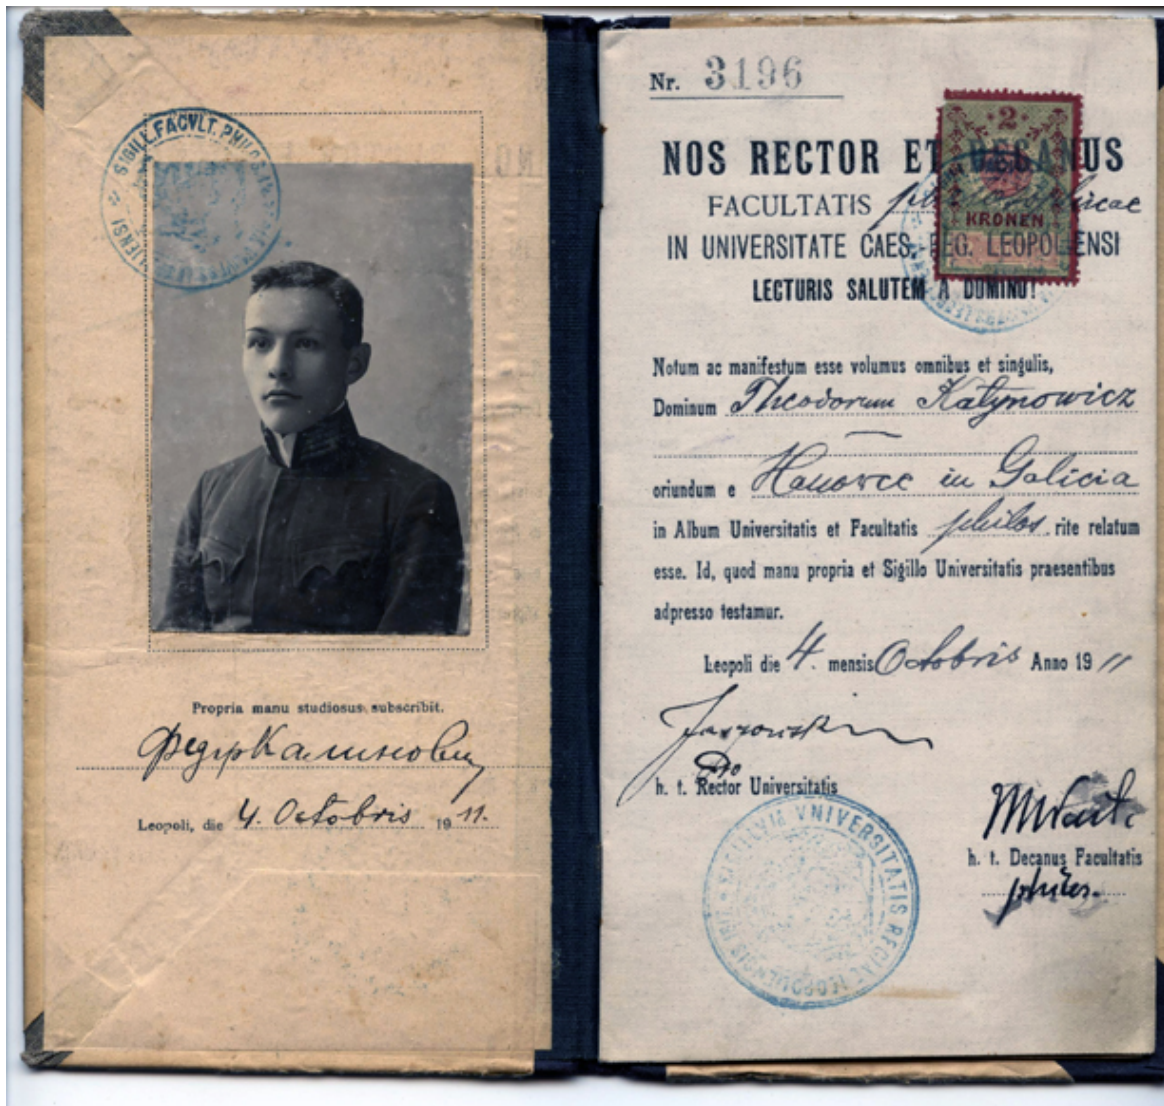 SIGILL. FACVLT. PHILOS.
Propria manu studiosus subscribit.
Федір Калинович
Leopoli, die 4. Octobris 1911.
Nr. 3196
2
KRONEN
NOS RECTOR ET DECANUS
FACULTATIS philosophicae
IN UNIVERSITATE CAES. REG. LEOPOLIENSI
LECTURIS SALUTEM A DOMINO!
Notum ac manifestum esse volumus omnibus et singulis,
Dominum Theodorum Kalynowicz
oriundum e Hanowce in Galicia
in Album Universitatis et Facultatis philos. rite relatum
esse. Id, quod manu propria et Sigillo Universitatis praesentibus
adpresso testamur.
Leopoli die 4. mensis Octobris Anno 1911
Pro
h. t. Rector Universitatis
h. t. Decanus Facultatis
philos.
SIGILLVM VNIVERSITATIS REGIAE LEOPOLIENSIS